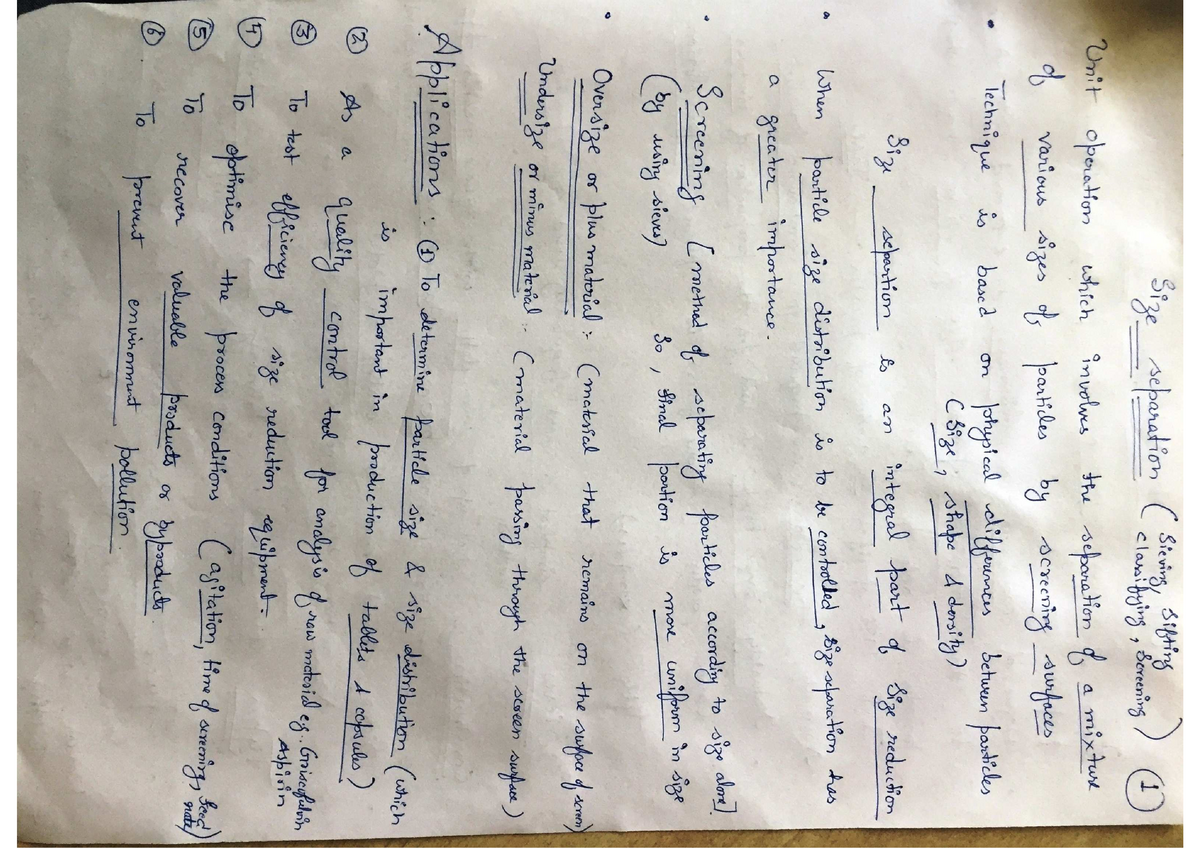 Size separation ( Sieving, Sifting
classifying, Screening ) ①
Unit operation which involves the separation of a mixture
of various sizes of particles by screening surfaces
• Technique is based on physical differences between particles
( Size, shape & density )
Size separtion is an integral part of Size reduction
• When particle size distribution is to be controlled, size separation has
a greater importance.
• Screening [ method of separating particles according to size alone ]
( by using sieves ) So, final portion is more uniform in size
• Oversize or plus material :- ( material that remains on the surface of screen )
Undersize or minus material :- ( material passing through the screen surface )
Applications : ① To determine particle size & size distribution ( which
is important in production of tablets & capsules )
② As a quality control tool for analysis of raw material eg. Griseofulvin
Aspirin
③ To test efficiency of size reduction equipment.
④ To optimise the process conditions ( agitation, time of screening, feed
rate )
⑤ To recover valuable products or byproducts.
⑥ To prevent environment pollution.